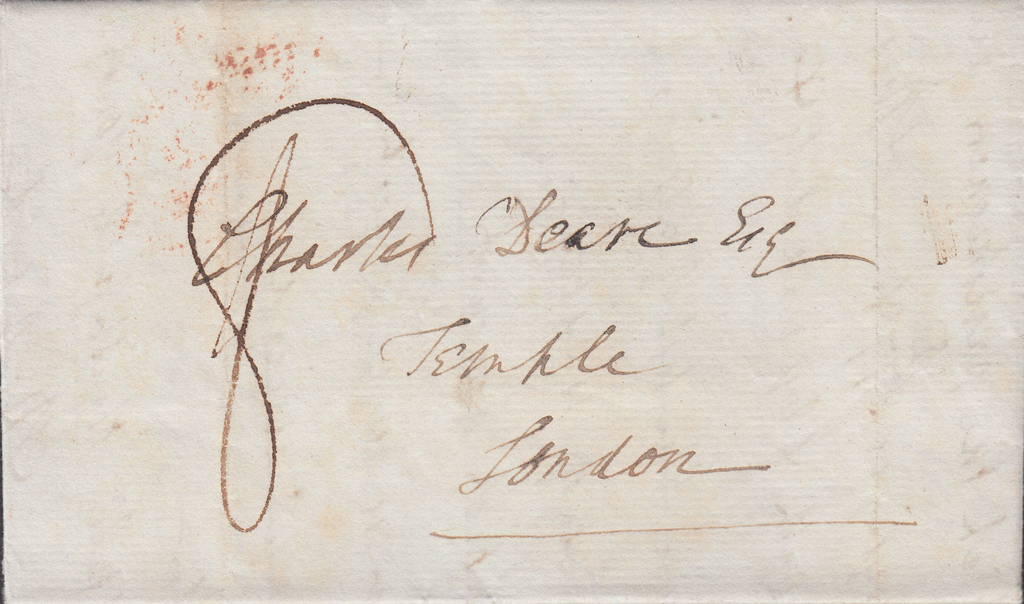 8
Charles Deare Esq
Temple
London